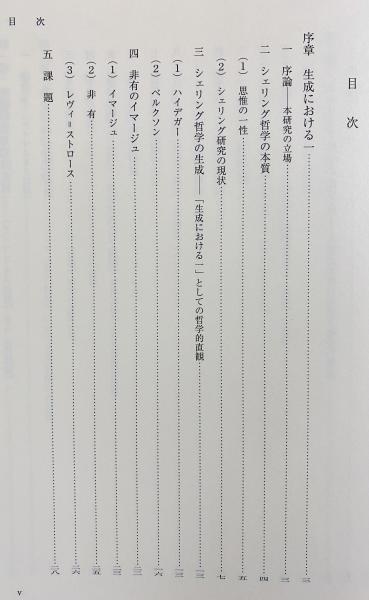 目次
目次
序章 生成における一……三
一 序論――本研究の立場……三
二 シェリング哲学の本質……四
(1) 思惟の一性……五
(2) シェリング研究の現状……七
三 シェリング哲学の生成――「生成における一」としての哲学的直観……
(1) ハイデガー……
(2) ベルクソン……一六
四 非有のイマージュ……
(1) イマージュ……
(2) 非有……二五
(3) レヴィ=ストロース……二六
五 課題……二八
v